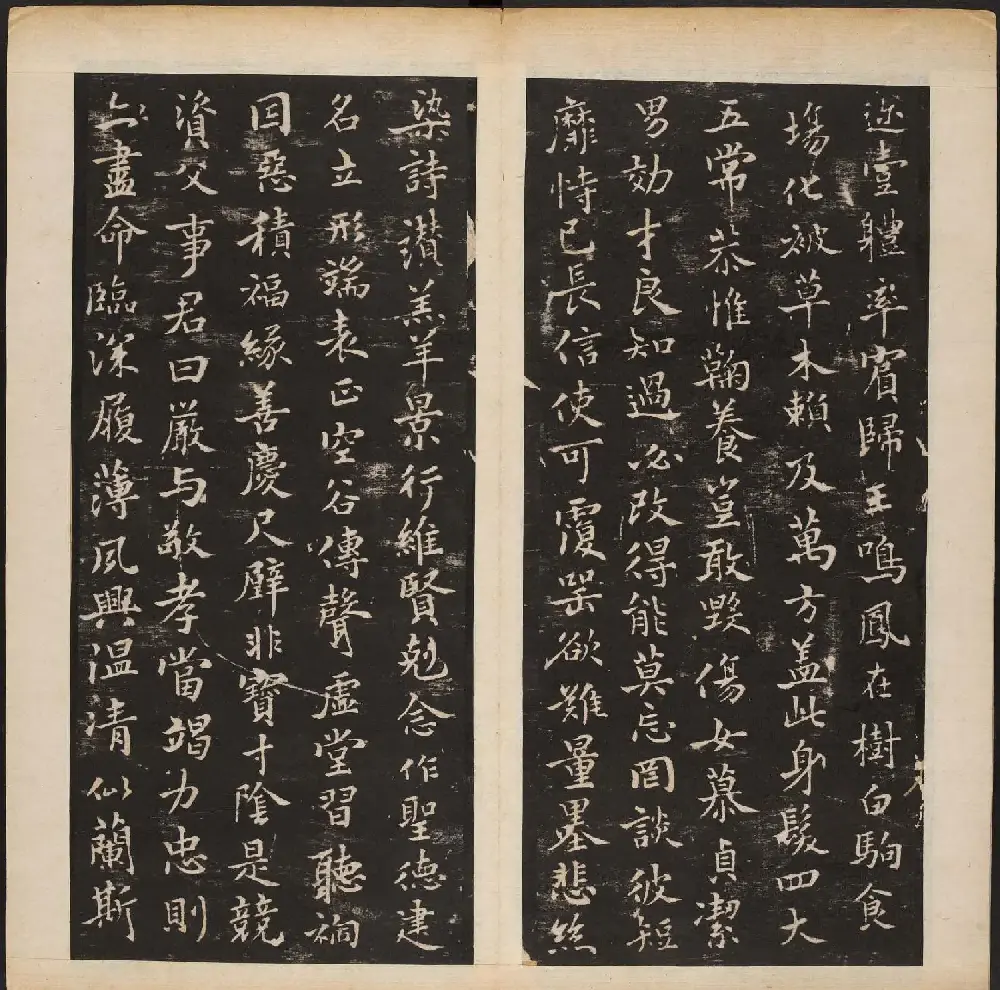 迩壹軆率賓歸王鳴鳳在樹白駒食
塲化被草木賴及萬方盖此身髮四大
五常恭惟鞠養豈敢毀傷女慕貞潔
男効才良知過必改得能莫忘罔談彼短
靡恃己長信使可覆器欲難量墨悲絲
染詩讃羔羊景行維賢剋念作聖德建
名立形端表正空谷傳聲虛堂習聽禍
因惡積福緣善慶尺璧非寶寸陰是競
資父事君曰嚴与敬孝當竭力忠則
盡命臨深履薄夙興温凊似蘭斯